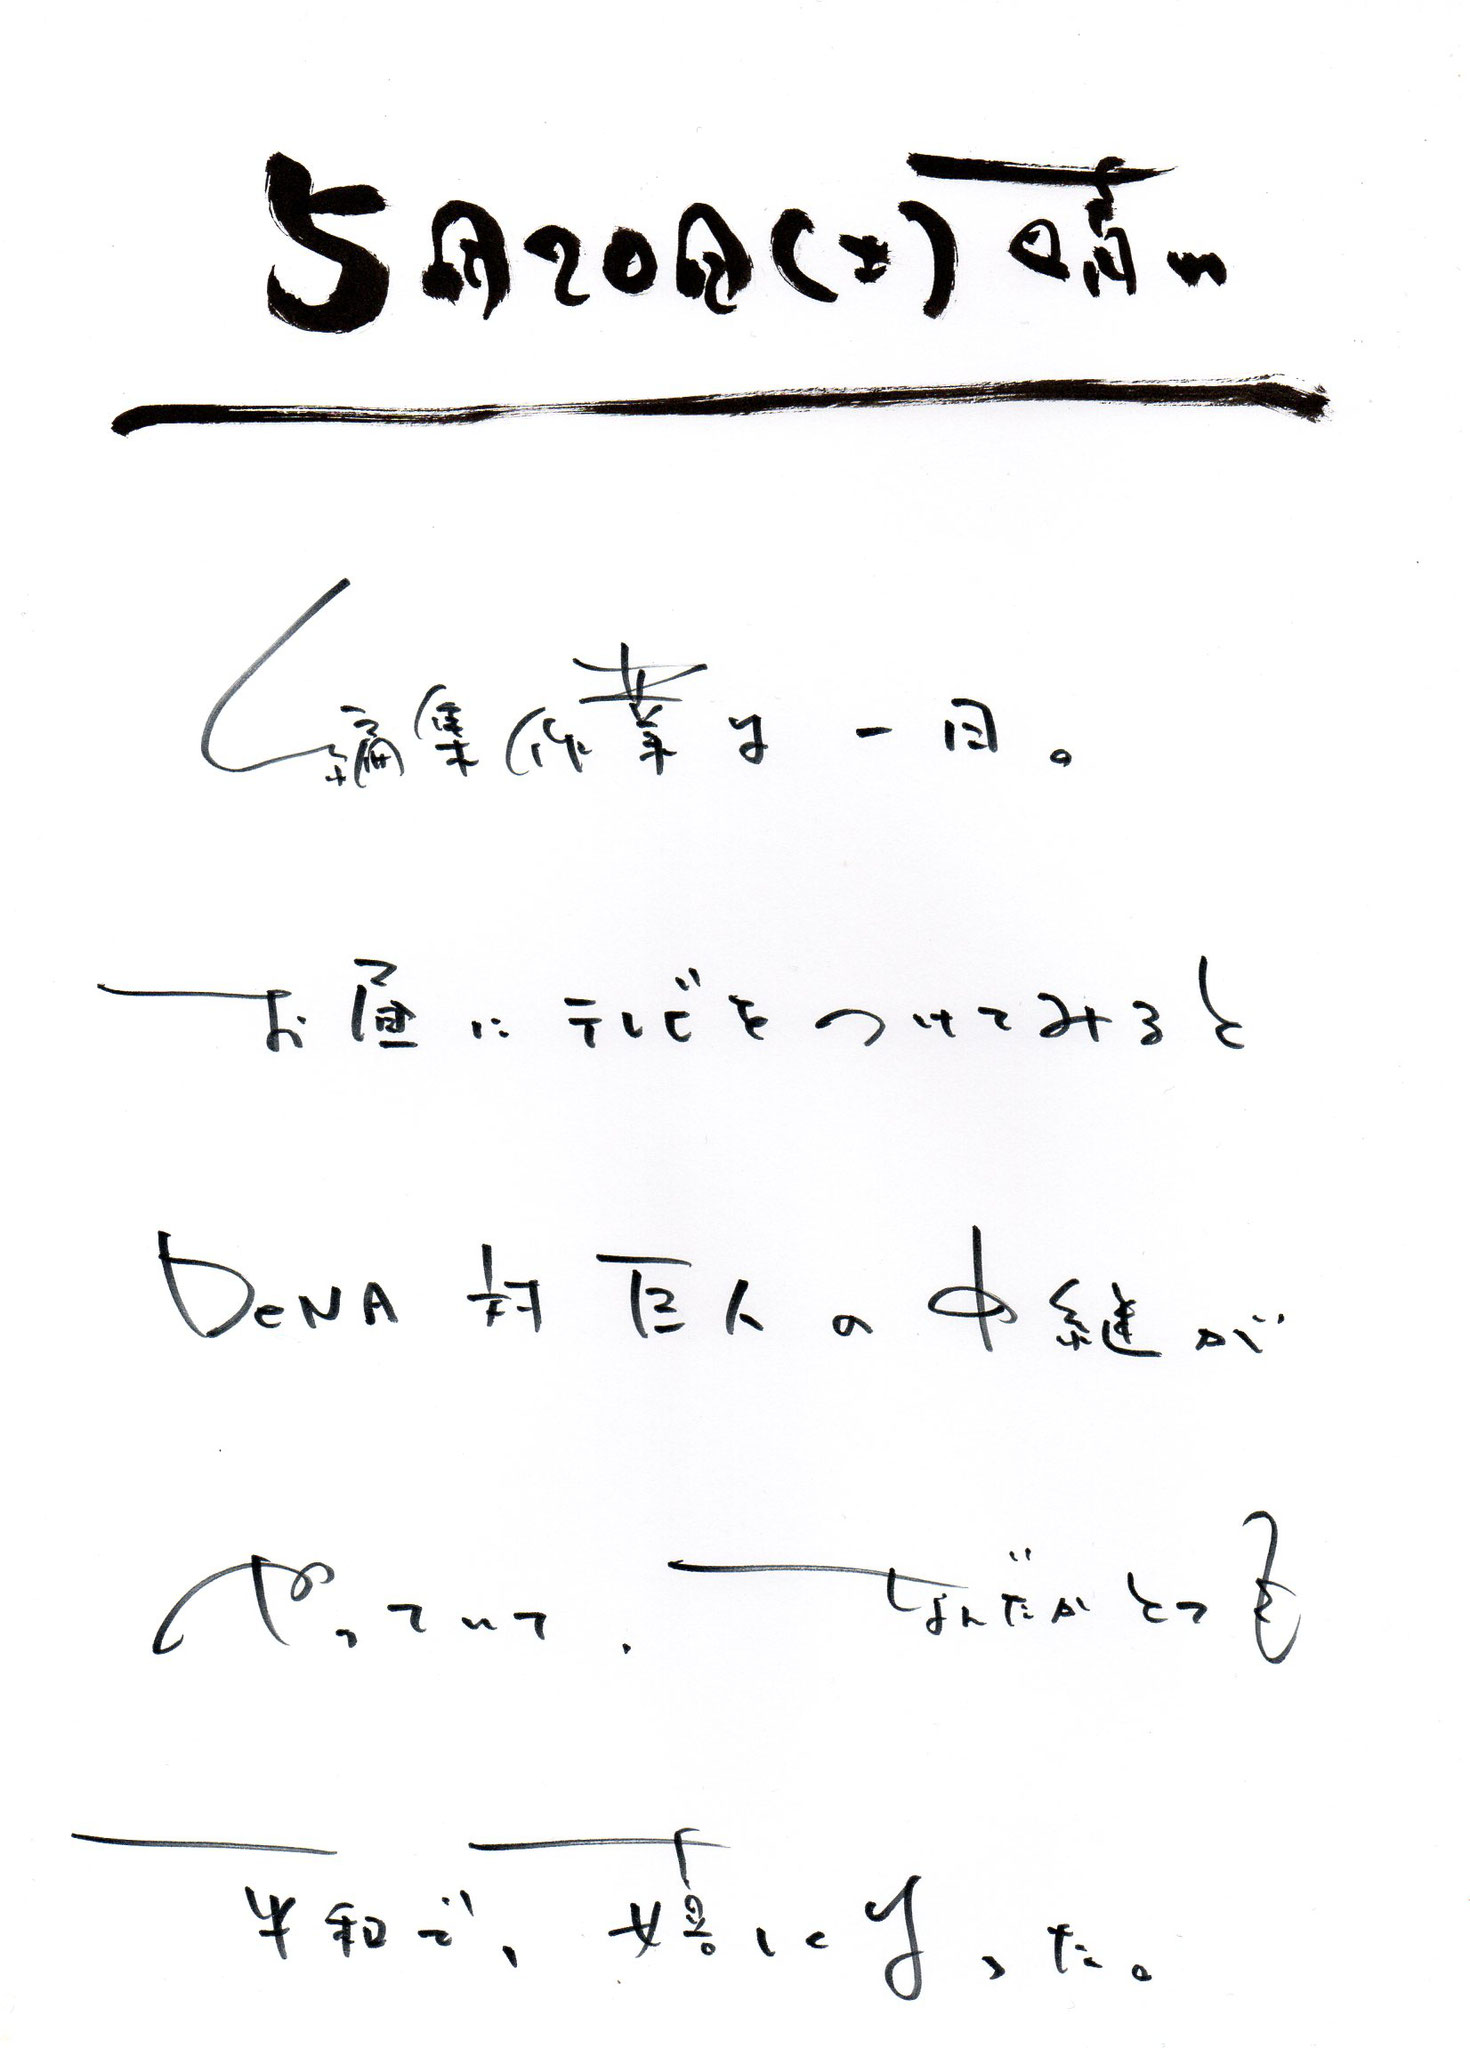 5月20日(土)晴れ
編集作業な一日。
お昼にテレビをつけてみると
DeNA対巨人の中継が
やっていて、なんだかとっても
平和で、嬉しくなった。